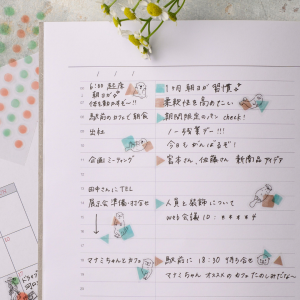 6:00 起床
1ヶ月 朝ヨガ 習慣
朝ヨガ
体を動かすぞー!!
柔軟性を高めたい
駅前のカフェで朝食
期間限定のパン check!
出社
ノー残業デー!!!
今日もがんばるぞ!
企画ミーティング
宮本さん、佐藤さん 新商品アイデア
田中さんにTEL
展示会準備・打合せ
人員と装飾について
web会議 ID : ＊＊＊＊
マナミちゃんとカフェ
駅前に 18:30 待ち合せ
マナミちゃん オススメのカフェ たのしみだな〜
ドライブ